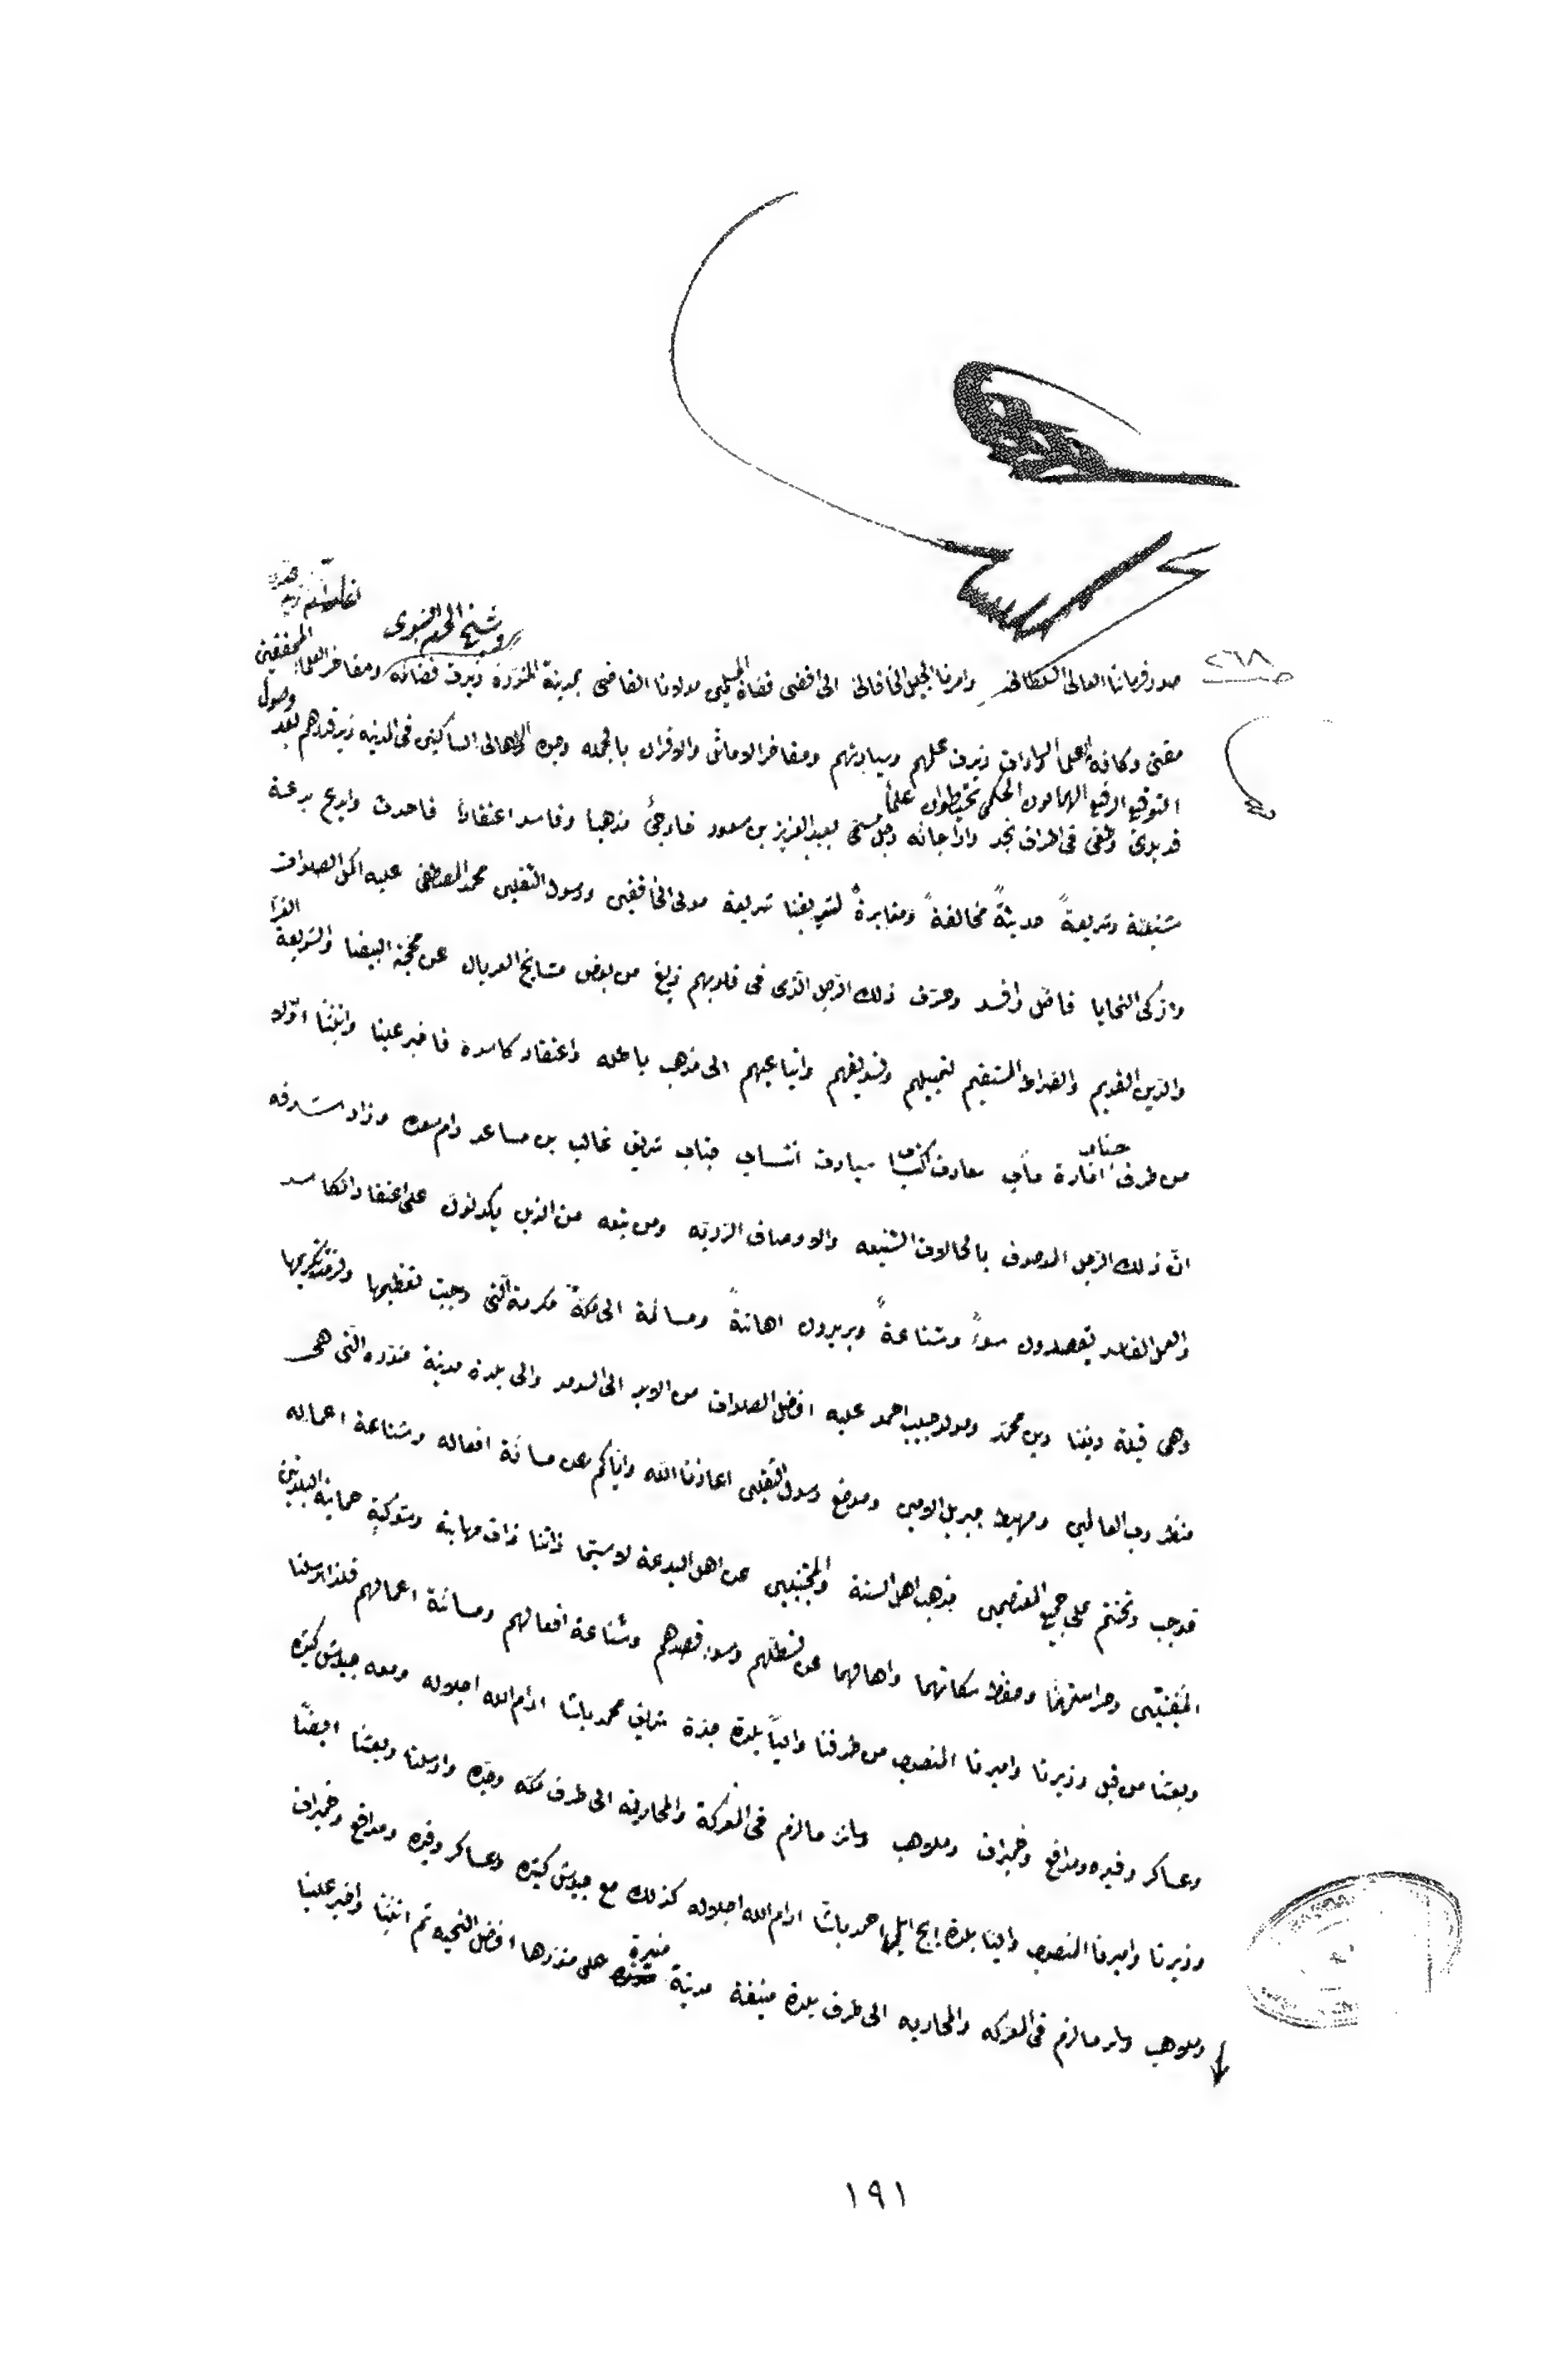 وشيخ الحرم النبوى
صدر فرماننا العالى السلطانى وامرنا الجليل الخاقانى الى اقضى قضاة المسلمين مولانا القاضى بمدينة المنورة زيدت فضائله ومفاخر العلماء المحققين
مفتى وكافة اهل السادات زيدت علمهم وسيادتهم ومفاخر الاماثل والاقران بالجمله وجوه الاهالى الساكنين فى المدينه زيد قدرهم بعد وصول
التوقيع الرفيع الهمايون الحكمى تحيطون علماً
قد بدئ وطغى فى اطراف نجد وادا جانه رجل مسمى بعبد العزيز بن سعود خارجئ مذهبا وفاسد اعتقادا فاحدث وابدع بدعة
شنيعة وشريعةً حديثةً مخالفةً ومغايرةً لشريعتنا شريعة مولى الخافقين ورسول الثقلين محمد المصطفى عليه اكمل الصلوات
وازكى التحايا فاضل وافسد وحرف ذلك الرجل الذى فى قلوبهم زيغ من بعض مشايخ العربان عن محجة البيضا والشريعة الغرآ
والدين القويم والصراط المستقيم لتميلهم واتباعهم الى مذهب باطله واعتقاد كاسده فاخبر علينا وانبئنا اولا
من طرف جناب امارة مآب سعادت اكتساب سيادت انتساب جناب شريف غالب بن مساعد دام سعده وزاد شرفه
ان ذلك الرجل الموصوف بالحالات الشنيعه والاوصاف الرديه ومن تبعه من الذين على اعتقاد الكاسد
والعمل الفاسد يقصدون سوءً وشناعةً ويريدون اهانةً ومسائة الى مكة مكرمة التى وجبت تعظيمها ولزمت تكريمها
وهى قبلة ديننا دين محمد ومولد حبيب احمد عليه افضل الصلوات من الابد الى السرمد والى بلدة مدينة منوره التى هى
منظر رب العالمين ومهبط جبريل الامين وموضع رسول الثقلين اعاذنا الله واياكم عن مسائة افعاله وشناعة اعماله
فوجب وتحتم على جميع المعتصمين بمذهب اهل السنة والمجتنبين عن اهل البدعة لاسيما ذاتنا ذات مهابة حماية البلدتين
وحراستهما وحفظ سكانهما واهاليهما عن تسلطهم وسوء قصدهم وشناعة افعالهم ومسائة اعمالهم فلذا ارسلنا
وبعثنا من قبل وزيرنا واميرنا المنصوب من طرفنا واليا بلدة جدة شريف محمد باشا ادام الله اجلاله ومعه جيوش كثيره
وعساكر وفيره ومدافع وخمبرات وسائر مالزم فى المعركة والمحاربه الى طرف مكه وجده وارسلنا وبعثنا ايضا
وزيرنا واميرنا المنصوب واليا بلدة احمد باشا ادام الله اجلاله كذلك مع جيوش كثيره وعساكر وفيره ومدافع وخمبرات
وسائر مالزم فى المعركه والمحاربه الى طرف بلدة منيفة مدينة منيرة على منورها افضل التحيه ثم انبئنا واخبر علينا
١٩١